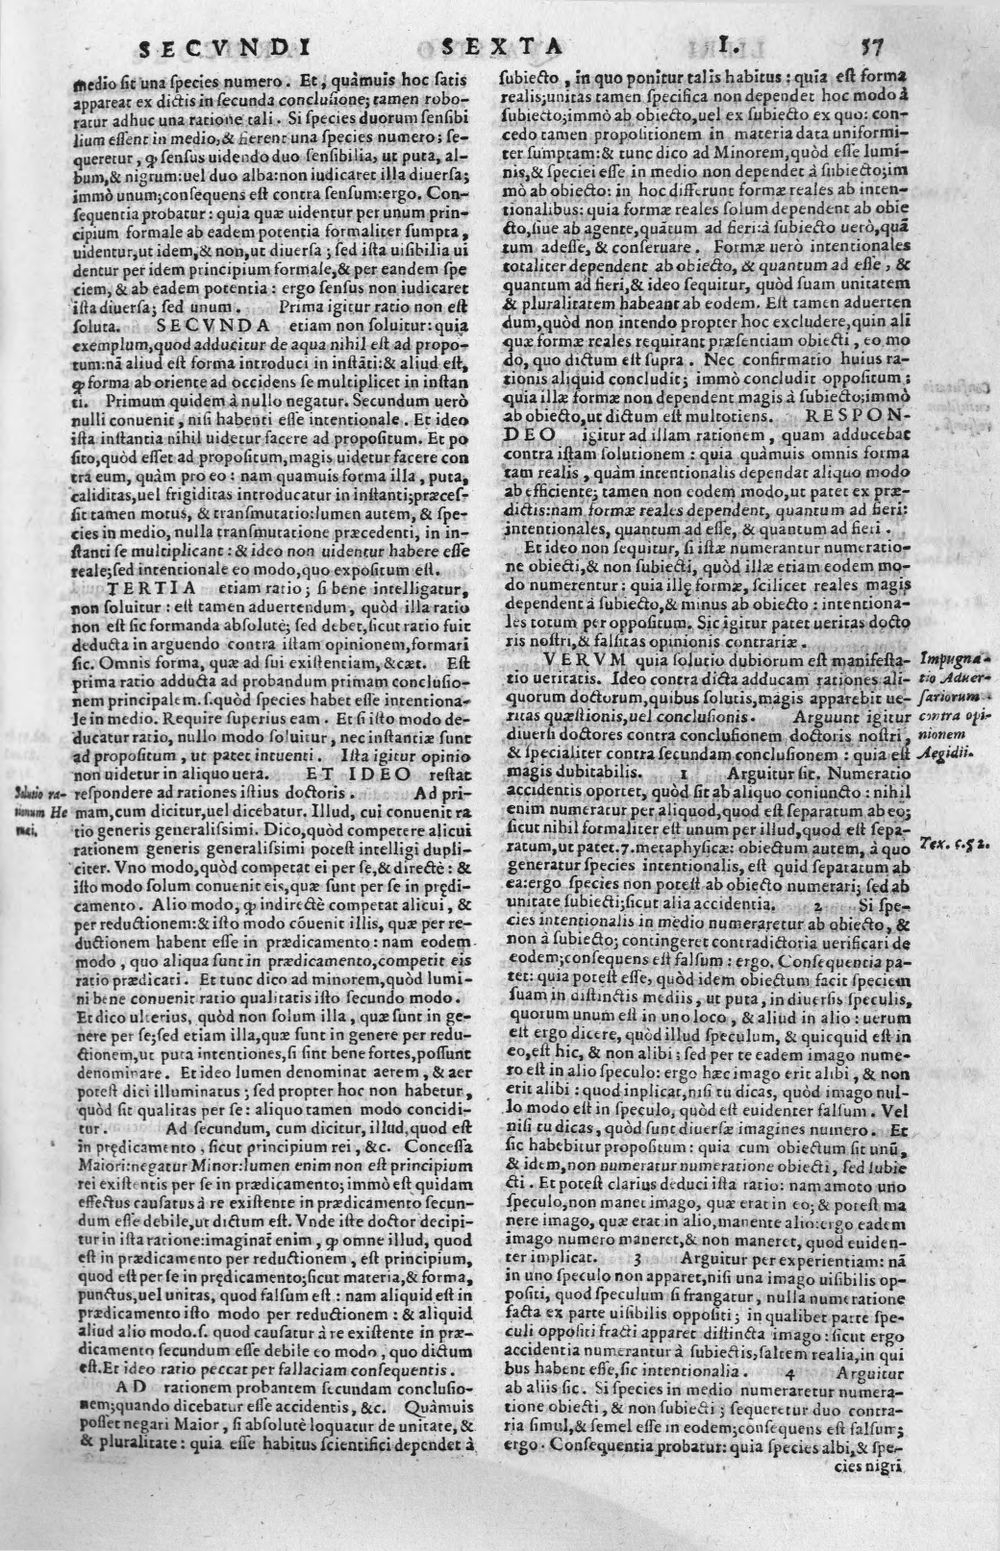 SECVNDI SEXTA I. 57
medio sit una species numero. Et, quàmuis hoc satis
appareat ex dictis in secunda conclusione; tamen robo-
ratur adhuc una ratione tali. Si species duorum sensibi
lium essent in medio, & fierent una species numero; se-
queretur, ꝙ sensus uidendo duo sensibilia, ut puta, al-
bum, & nigrum: uel duo alba: non iudicaret illa diuersa;
immò unum; consequens est contra sensum: ergo. Con-
sequentia probatur: quia quæ uidentur per unum prin-
cipium formale ab eadem potentia formaliter sumpta,
uidentur, ut idem, & non, ut diuersa; sed ista uisibilia ui
dentur per idem principium formale, & per eandem spe
ciem, & ab eadem potentia: ergo sensus non iudicaret
ista diuersa; sed unum. Prima igitur ratio non est
soluta. SECVNDA etiam non soluitur: quia
exemplum, quod adducitur de aqua nihil est ad propo-
tum: nã aliud est forma introduci in instãti: & aliud est,
ꝙ forma ab oriente ad occidens se multiplicet in instan
ti. Primum quidem à nullo negatur. Secundum uerò
nulli conuenit, nisi habenti esse intentionale. Et ideo
ista instantia nihil uidetur facere ad propositum. Et po
sito, quòd esset ad propositum, magis uidetur facere con
tra eum, quàm pro eo: nam quamuis forma illa, puta,
caliditas, uel frigiditas introducatur in instanti; præces-
sit tamen motus, & transmutatio: lumen autem, & spe-
cies in medio, nulla transmutatione præcedenti, in in-
stanti se multiplicant: & ideo non uidentur habere esse
reale; sed intentionale eo modo, quo expositum est.
TERTIA etiam ratio; si bene intelligatur,
non soluitur: est tamen aduertendum, quòd illa ratio
non est sic formanda absolutè; sed debet, sicut ratio fuit
deducta in arguendo contra istam opinionem, formari
sic. Omnis forma, quæ ad sui existentiam, & cæt. Est
prima ratio adducta ad probandum primam conclusio-
nem principalem. s. quòd species habet esse intentiona-
le in medio. Require superius eam. Et si isto modo de-
ducatur ratio, nullo modo soluitur, nec instantiæ sunt
ad propositum, ut patet intuenti. Ista igitur opinio
non uidetur in aliquo uera. ET IDEO restat
respondere ad rationes istius doctoris. Ad pri-
mam, cum dicitur, uel dicebatur. Illud, cui conuenit ra
tio generis generalissimi. Dico, quòd competere alicui
rationem generis generalissimi potest intelligi dupli-
citer. Vno modo, quòd competat ei per se, & directè: &
isto modo solum conuenit eis, quæ sunt per se in prędi-
camento. Alio modo, ꝙ indirectè competat alicui, &
per reductionem: & isto modo cõuenit illis, quæ per re-
ductionem habent esse in prædicamento: nam eodem
modo, quo aliqua sunt in prædicamento, competit eis
ratio prædicati. Et tunc dico ad minorem, quòd lumi-
ni bene conuenit ratio qualitatis isto secundo modo.
Et dico ulterius, quòd non solum illa, quæ sunt in ge-
nere per se; sed etiam illa, quæ sunt in genere per redu-
ctionem, ut puta intentiones, si sint bene fortes, possunt
denominare. Et ideo lumen denominat aerem, & aer
potest dici illuminatus; sed propter hoc non habetur,
quòd sit qualitas per se: aliquo tamen modo concidi-
tur. Ad secundum, cum dicitur, illud, quod est
in prędicamento, sicut principium rei, &c. Concessa
Maiori: negatur Minor: lumen enim non est principium
rei existentis per se in prædicamento; immò est quidam
effectus causatus à re existente in prædicamento secun-
dum esse debile, ut dictum est. Vnde iste doctor decipi-
tur in ista ratione: imaginat͂ enim, ꝙ omne illud, quod
est in prædicamento per reductionem, est principium,
quod est per se in prędicamento; sicut materia, & forma,
punctus, uel unitas, quod falsum est: nam aliquid est in
prædicamento isto modo per reductionem: & aliquid
aliud alio modo. s. quod causatur à re existente in præ-
dicamento secundum esse debile eo modo, quo dictum
est. Et ideo ratio peccat per fallaciam consequentis.
AD rationem probantem secundam conclusio-
nem; quando dicebatur esse accidentis, &c. Quàmuis
posset negari Maior, si absolutè loquatur de unitate, &
& pluralitate: quia esse habitus scientifici dependet à
Solutio ra-
tionum He
ruei,
subiecto, in quo ponitur talis habitus: quia est forma
realis; unitas tamen specifica non dependet hoc modo à
subiecto; immò ab obiecto, uel ex subiecto ex quo: con-
cedo tamen propositionem in materia data uniformi-
ter sumptam: & tunc dico ad Minorem, quòd esse lumi-
nis, & speciei esse in medio non dependet à subiecto; im
mò ab obiecto: in hoc differunt formæ reales ab inten-
tionalibus: quia formæ reales solum dependent ab obie
cto, siue ab agente, quãtum ad fieri: à subiecto uerò, quã
tum adesse, & conseruare. Formæ uerò intentionales
totaliter dependent ab obiecto, & quantum ad esse, &
quantum ad fieri, & ideo sequitur, quòd suam unitatem
& pluralitatem habeant ab eodem. Est tamen aduerten
dum, quòd non intendo propter hoc excludere, quin ali
quæ formæ reales requirant præsentiam obiecti, eo mo
do, quo dictum est supra. Nec confirmatio huius ra-
tionis aliquid concludit; immò concludit oppositum;
quia illæ formæ non dependent magis à subiecto; immò
ab obiecto, ut dictum est multotiens. RESPON-
DEO igitur ad illam rationem, quam adducebat
contra istam solutionem: quia quàmuis omnis forma
tam realis, quàm intentionalis dependat aliquo modo
ab efficiente; tamen non eodem modo, ut patet ex præ-
dictis: nam formæ reales dependent, quantum ad fieri:
intentionales, quantum ad esse, & quantum ad fieri.
Et ideo non sequitur, si istæ numerantur numeratio-
ne obiecti, & non subiecti, quòd illæ etiam eodem mo-
do numerentur: quia illę formæ, scilicet reales magis
dependent à subiecto, & minus ab obiecto: intentiona-
les totum per oppositum. Sic igitur patet ueritas docto
ris nostri, & falsitas opinionis contrariæ.
VERVM quia solutio dubiorum est manifesta-
tio ueritatis. Ideo contra dicta adducam rationes ali-
quorum doctorum, quibus solutis, magis apparebit ue-
ritas quæstionis, uel conclusionis. Arguunt igitur
diuersi doctores contra conclusionem doctoris nostri,
& specialiter contra secundam conclusionem: quia est
magis dubitabilis. 1 Arguitur sic. Numeratio
accidentis oportet, quòd sit ab aliquo coniuncto: nihil
enim numeratur per aliquod, quod est separatum ab eo;
sicut nihil formaliter est unum per illud, quod est sepa-
ratum, ut patet. 7. metaphysicæ: obiectum autem, à quo
generatur species intentionalis, est quid separatum ab
ea: ergo species non potest ab obiecto numerari; sed ab
unitate subiecti; sicut alia accidentia. 2 Si spe-
cies intentionalis in medio numeraretur ab obiecto, &
non à subiecto; contingeret contradictoria uerificari de
eodem; consequens est falsum: ergo. Consequentia pa-
tet: quia potest esse, quòd idem obiectum facit speciem
suam in distinctis mediis, ut puta, in diuersis speculis,
quorum unum est in uno loco, & aliud in alio: uerum
est ergo dicere, quòd illud speculum, & quicquid est in
eo, est hic, & non alibi; sed per te eadem imago nume-
ro est in alio speculo: ergo hæc imago erit alibi, & non
erit alibi: quod inplicat, nisi tu dicas, quòd imago nul-
lo modo est in speculo, quòd est euidenter falsum. Vel
nisi tu dicas, quòd sunt diuersæ imagines numero. Et
sic habebitur propositum: quia cum obiectum sit unũ,
& idem, non numeratur numeratione obiecti, sed subie
cti. Et potest clarius deduci ista ratio: nam amoto uno
speculo, non manet imago, quæ erat in eo; & potest ma
nere imago, quæ erat in alio, manente alio: ergo eadem
imago numero maneret, & non maneret, quod euiden-
ter implicat. 3 Arguitur per experientiam: nã
in uno speculo non apparet, nisi una imago uisibilis op-
positi, quod speculum si frangatur, nulla numeratione
facta ex parte uisibilis oppositi; in qualibet parte spe-
culi oppositi fracti apparet distincta imago: sicut ergo
accidentia numerantur à subiectis, saltem realia, in qui
bus habent esse, sic intentionalia. 4 Arguitur
ab aliis sic. Si species in medio numeraretur numera-
tione obiecti, & non subiecti; sequeretur duo contra-
ria simul, & semel esse in eodem; consequens est falsum;
ergo. Consequentia probatur: quia species albi, & spe-
cies nigri
Impugna-
tio Aduer-
sariorum
contra opi-
nionem
Aegidii.
Tex. c. 52.